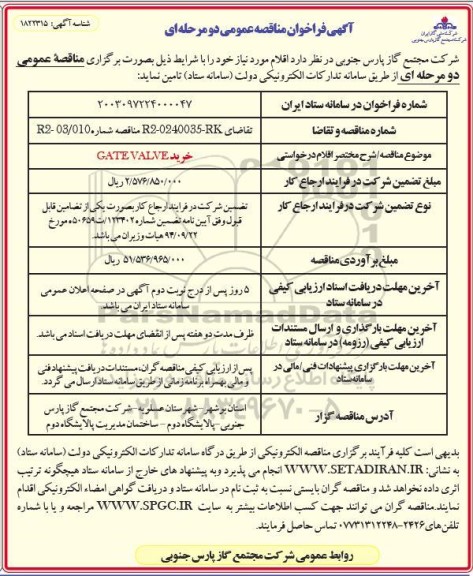 شناسه آگهی: ۱۸۲۲۳۱۵
آگهی فراخوان مناقصه عمومی دو مرحله‌ای
شرکت ملی گاز ایران
شرکت مجتمع گاز پارس جنوبی
شرکت مجتمع گاز پارس جنوبی در نظر دارد اقلام مورد نیاز خود را با شرایط ذیل بصورت برگزاری مناقصهٔ عمومی
دو مرحله ای از طریق سامانه تدارکات الکترونیکی دولت (سامانه ستاد) تامین نماید:
شماره فراخوان در سامانه ستاد ایران
۲۰۰۳۰۹۷۲۲۴۰۰۰۰۴۷
شماره مناقصه و تقاضا
تقاضای R2-0240035-RK مناقصه شماره R2- 03/010
موضوع مناقصه/شرح مختصر اقلام درخواستی
خرید GATE VALVE
مبلغ تضمین شرکت در فرایند ارجاع کار
۲/۵۷۶/۸۵۰/۰۰۰ ریال
نوع تضمین شرکت در فرایند ارجاع کار
تضمین شرکت در فرایند ارجاع کار بصورت یکی از تضامین قابل
قبول وفق آیین نامه تضمین شماره ۱۲۳۴۰۲/ت۵۰۶۵۹ه مورخ
۹۴/۰۹/۲۲ هیات وزیران می باشد.
مبلغ برآوردی مناقصه
۵۱/۵۳۶/۹۶۵/۰۰۰ ریال
آخرین مهلت دریافت اسناد ارزیابی کیفی
در سامانه ستاد
۵ روز پس از درج نوبت دوم آگهی در صفحه اعلان عمومی
سامانه ستاد ایران می باشد.
آخرین مهلت بارگذاری و ارسال مستندات
ارزیابی کیفی (رزومه) در سامانه ستاد
ظرف مدت دو هفته پس از انقضای مهلت دریافت اسناد می باشد.
آخرین مهلت بارگزاری پیشنهادات فنی/مالی در
سامانه ستاد
پس از ارزیابی کیفی مناقصه گران، مستندات دریافت پیشنهاد فنی
و مالی بهمراه برنامه زمانی از طریق سامانه ستاد ارسال می گردد.
آدرس مناقصه گزار
استان بوشهر- شهرستان عسلویه – شرکت مجتمع گاز پارس
جنوبی- پالایشگاه دوم – ساختمان مدیریت پالایشگاه دوم
بدیهی است کلیه فرآیند برگزاری مناقصه الکترونیکی از طریق درگاه سامانه تدارکات الکترونیکی دولت (سامانه ستاد)
به نشانی: WWW.SETADIRAN.IR انجام می پذیرد و به پیشنهاد های خارج از سامانه ستاد هیچگونه ترتیب
اثری داده نخواهد شد و مناقصه گران بایستی نسبت به ثبت نام در سامانه ستاد و دریافت گواهی امضاء الکترونیکی اقدام
نمایند.مناقصه گران می توانند جهت کسب اطلاعات بیشتر به سایت WWW.SPGC.IR مراجعه و یا با شماره
تلفن‌های ۲۴۲۶-۰۷۷۳۱۳۱۲۲۴۸ تماس حاصل فرمایند.
روابط عمومی شرکت مجتمع گاز پارس جنوبی
ParsNamadData